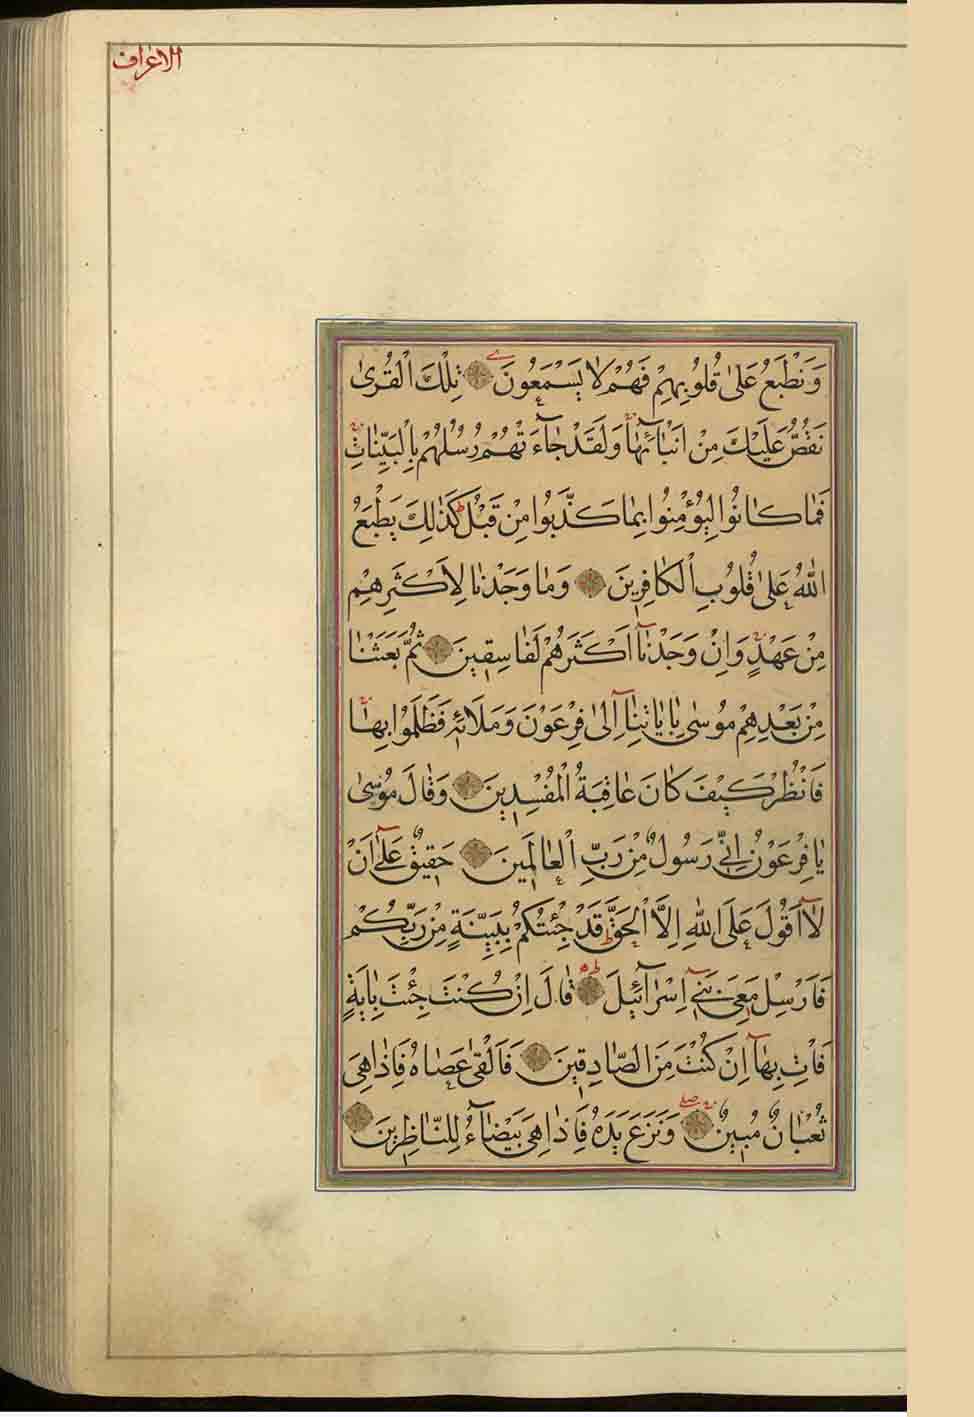 الاعراف
وَنَطْبَعُ عَلىٰ قُلُوبِهِمْ فَهُمْ لا يَسْمَعُونَ تِلْكَ الْقُرىٰ
نَقُصُّ عَلَيْكَ مِنْ اَنْبٰائِهٰا وَلَقَدْ جٰاءَتْهُمْ رُسُلُهُمْ بِالْبَيِّنٰاتِ
فَمٰا كٰانُوا لِيُؤْمِنُوا بِمٰا كَذَّبُوا مِنْ قَبْلُ كَذٰلِكَ يَطْبَعُ
اللّٰهُ عَلىٰ قُلُوبِ الْكٰافِرِينَ وَمٰا وَجَدْنٰا لِاَكْثَرِهِمْ
مِنْ عَهْدٍ وَاِنْ وَجَدْنٰا اَكْثَرَهُمْ لَفٰاسِقِينَ ثُمَّ بَعَثْنٰا
مِنْ بَعْدِهِمْ مُوسٰى بِاٰيٰاتِنٰا اِلىٰ فِرْعَوْنَ وَمَلَائِهِ فَظَلَمُوا بِهٰا
فَانْظُرْ كَيْفَ كٰانَ عٰاقِبَةُ الْمُفْسِدِينَ وَقٰالَ مُوسىٰ
يٰا فِرْعَوْنُ اِنِّي رَسُولٌ مِنْ رَبِّ الْعٰالَمِينَ حَقِيقٌ عَلىٰ اَنْ
لٰا اَقُولَ عَلَى اللّٰهِ اِلَّا الْحَقَّ قَدْ جِئْتُكُمْ بِبَيِّنَةٍ مِنْ رَبِّكُمْ
فَاَرْسِلْ مَعِيَ بَنِي اِسْرٰائِيلَ قٰالَ اِنْ كُنْتَ جِئْتَ بِاٰيَةٍ
فَاْتِ بِهٰا اِنْ كُنْتَ مِنَ الصّٰادِقِينَ فَاَلْقىٰ عَصٰاهُ فَاِذٰا هِيَ
ثُعْبٰانٌ مُبِينٌ وَنَزَعَ يَدَهُ فَاِذٰا هِيَ بَيْضٰاءُ لِلنّٰاظِرِينَ